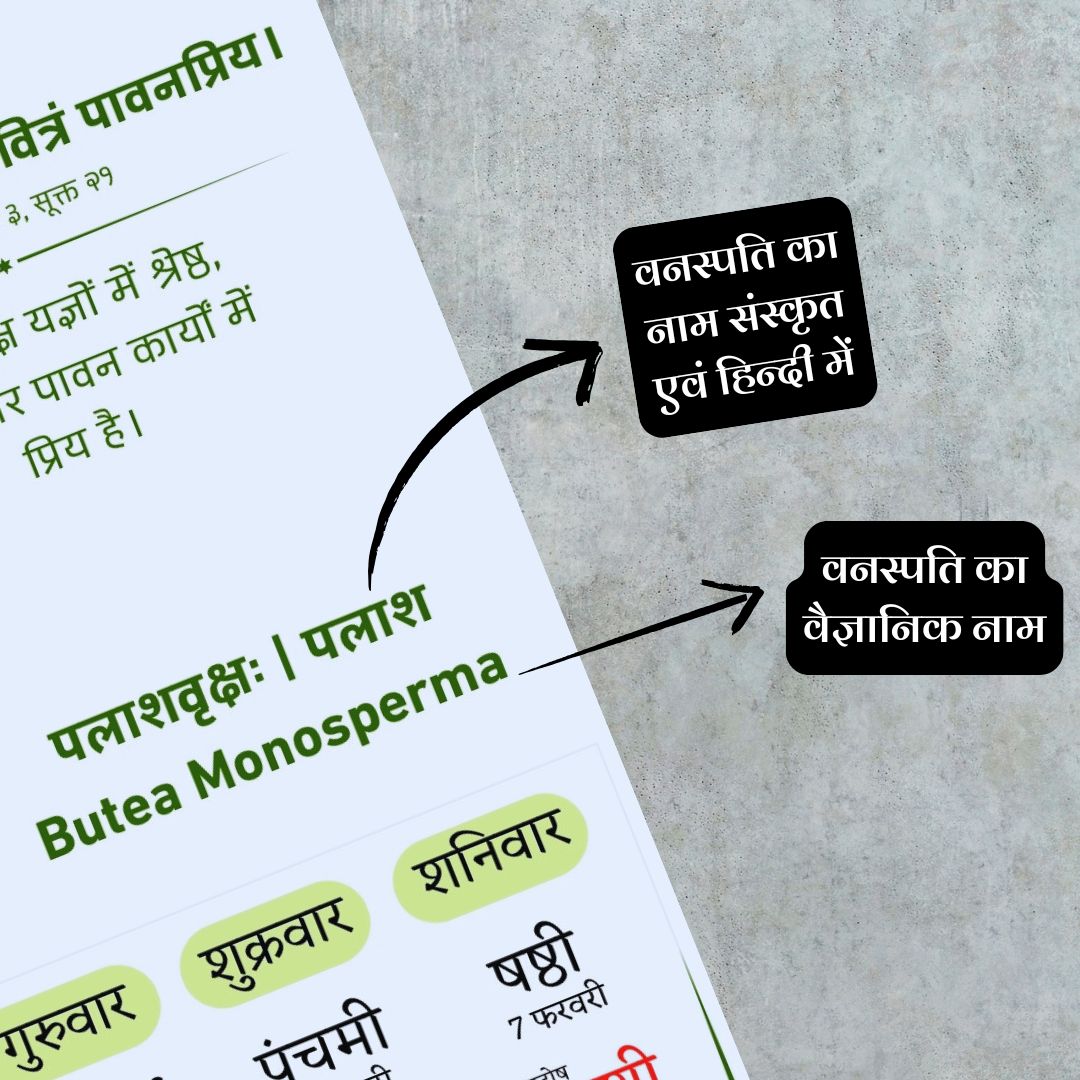 वित्रं पावनप्रिय।
३, सूक्त २१
यज्ञों में श्रेष्ठ,
पावन कार्यों में
प्रिय है।
वनस्पति का
नाम संस्कृत
एवं हिन्दी में
वनस्पति का
वैज्ञानिक नाम
पलाशवृक्षः | पलाश
Butea Monosperma
गुरुवार शुक्रवार शनिवार
पंचमी षष्ठी
7 फरवरी